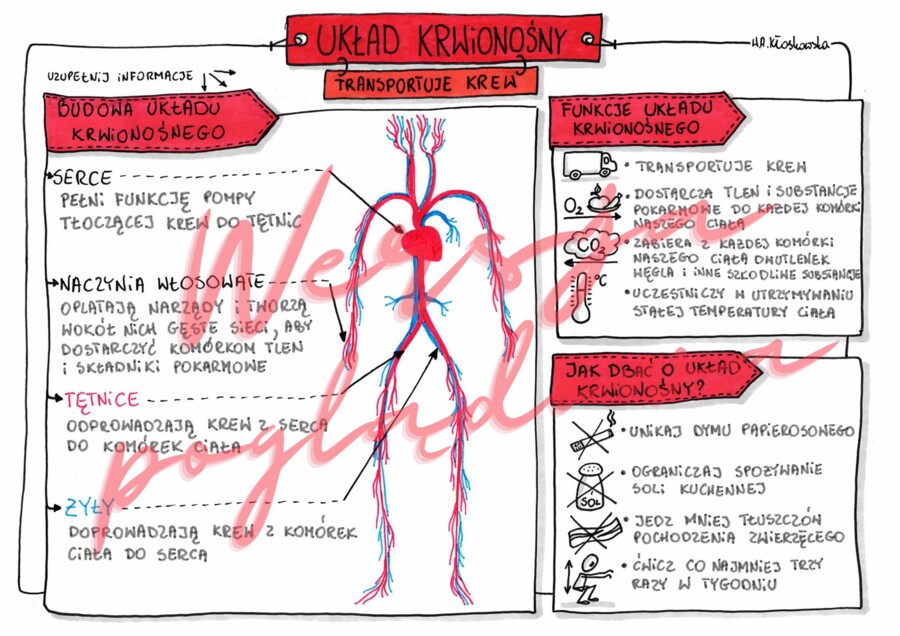 UKŁAD KRWIONOŚNY
TRANSPORTUJE KREW
M.A. Kłoskowska
UZUPEŁNIJ INFORMACJE
BUDOWA UKŁADU
KRWIONOŚNEGO
SERCE
PEŁNI FUNKCJĘ POMPY
TŁOCZĄCEJ KREW DO TĘTNIC
NACZYNIA WŁOSOWATE
OPLATAJĄ NARZĄDY I TWORZĄ
WOKÓŁ NICH GĘSTE SIECI, ABY
DOSTARCZYĆ KOMÓRKOM TLEN
I SKŁADNIKI POKARMOWE
TĘTNICE
ODPROWADZAJĄ KREW Z SERCA
DO KOMÓREK CIAŁA
ŻYŁY
DOPROWADZAJĄ KREW Z KOMÓREK
CIAŁA DO SERCA
FUNKCJE UKŁADU
KRWIONOŚNEGO
• TRANSPORTUJE KREW
O2
• DOSTARCZA TLEN I SUBSTANCJE
POKARMOWE DO KAŻDEJ KOMÓRKI
NASZEGO CIAŁA
CO2
• ZABIERA Z KAŻDEJ KOMÓRKI
NASZEGO CIAŁA DWUTLENEK
WĘGLA I INNE SZKODLIWE SUBSTANCJE
°C
• UCZESTNICZY W UTRZYMYWANIU
STAŁEJ TEMPERATURY CIAŁA
JAK DBAĆ O UKŁAD
KRWIONOŚNY?
• UNIKAJ DYMU PAPIEROSOWEGO
SÓL
• OGRANICZAJ SPOŻYWANIE
SOLI KUCHENNEJ
• JEDZ MNIEJ TŁUSZCZÓW
POCHODZENIA ZWIERZĘCEGO
• ĆWICZ CO NAJMNIEJ TRZY
RAZY W TYGODNIU
Wersja
poglądowa